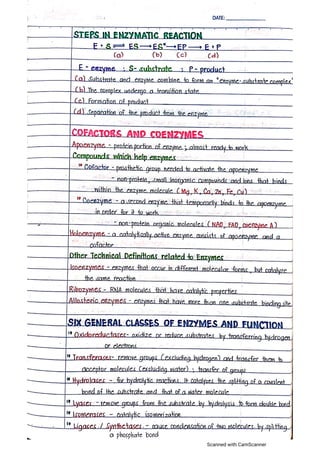 DATE:
STEPS IN ENZYMATIC REACTION
E + S ⇌ ES → ES* → EP → E + P
(a) (b) (c) (d)
E - enzyme ; S - substrate ; P - product
(a) Substrate and enzyme combine to form an "enzyme-substrate complex"
(b) The complex undergo a transition state
(c) Formation of product
(d) Separation of the product from the enzyme
COFACTORS AND COENZYMES
Apoenzyme - protein portion of enzyme ; almost ready to work
Compounds which help enzymes
Cofactor - prosthetic group needed to activate the apoenzyme
- non-protein, small inorganic compounds and ions that binds
within the enzyme molecule (Mg, K, Ca, Zn, Fe, Cu)
Coenzyme - a second enzyme that temporarily binds to the apoenzyme
in order for it to work
- non-protein organic molecules (NAD, FAD, coenzyme A)
Holoenzyme - a catalytically active enzyme consists of apoenzyme and a
cofactor
Other Technical Definitions related to Enzymes
Isoenzymes - enzymes that occur in different molecular forms, but catalyze
the same reaction
Ribozymes - RNA molecules that have catalytic properties
Allosteric enzymes - enzymes that have more than one substrate binding site
SIX GENERAL CLASSES OF ENZYMES AND FUNCTION
Oxidoreductases - oxidize or reduce substrates by transferring hydrogen
or electrons
Transferases - remove groups (excluding hydrogen) and transfer them to
acceptor molecules (excluding water) ; transfer of groups
Hydrolases - for hydrolytic reactions. It catalyzes the splitting of a covalent
bond of the substrate and that of a water molecule
Lyases - remove groups from the substrate by hydrolysis to form double bond
Isomerases - catalytic isomerization
Ligases / Synthetases - cause condensation of two molecules by splitting
a phosphate bond
Scanned with CamScanner